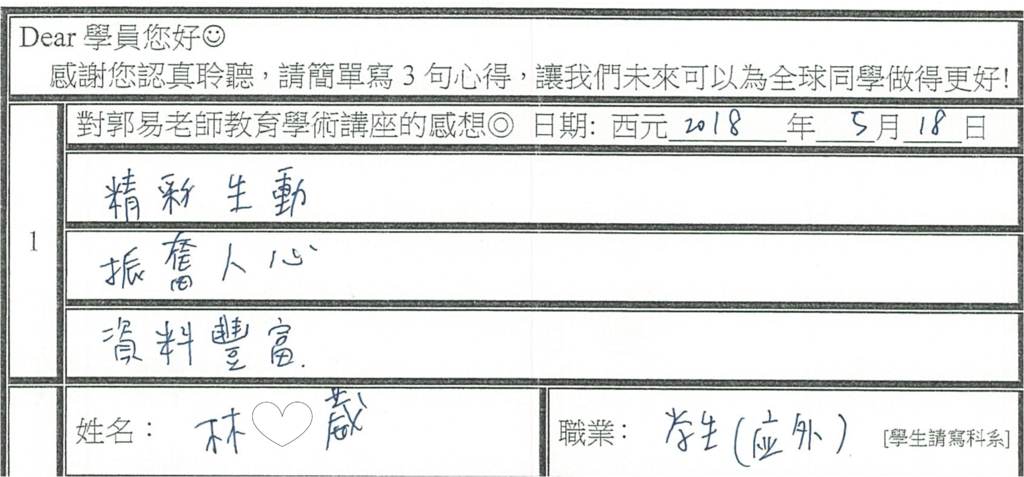 Dear 學員您好☺
感謝您認真聆聽，請簡單寫 3 句心得，讓我們未來可以為全球同學做得更好!
對郭易老師教育學術講座的感想◎ 日期: 西元 2018 年 5 月 18 日
1
精彩生動
振奮人心
資料豐富.
姓名： 林♡葳
職業： 学生(应外) [學生請寫科系]